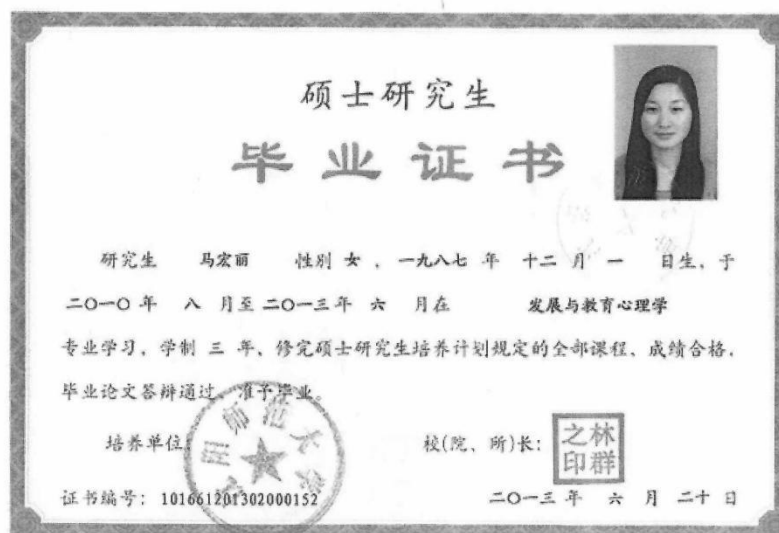 硕士研究生
毕业证书
研究生 马宏丽 性别 女 ，一九八七 年 十二 月 一 日生、于
二〇一〇 年 八 月至 二〇一三 年 六 月在 发展与教育心理学
专业学习，学制 三 年、修完硕士研究生培养计划规定的全部课程、成绩合格，
毕业论文答辩通过，准予毕业。
培养单位：
阳师范大学
校(院、所)长：
林群之印
证书编号：101661201302000152
二〇一三 年 六 月 二十 日